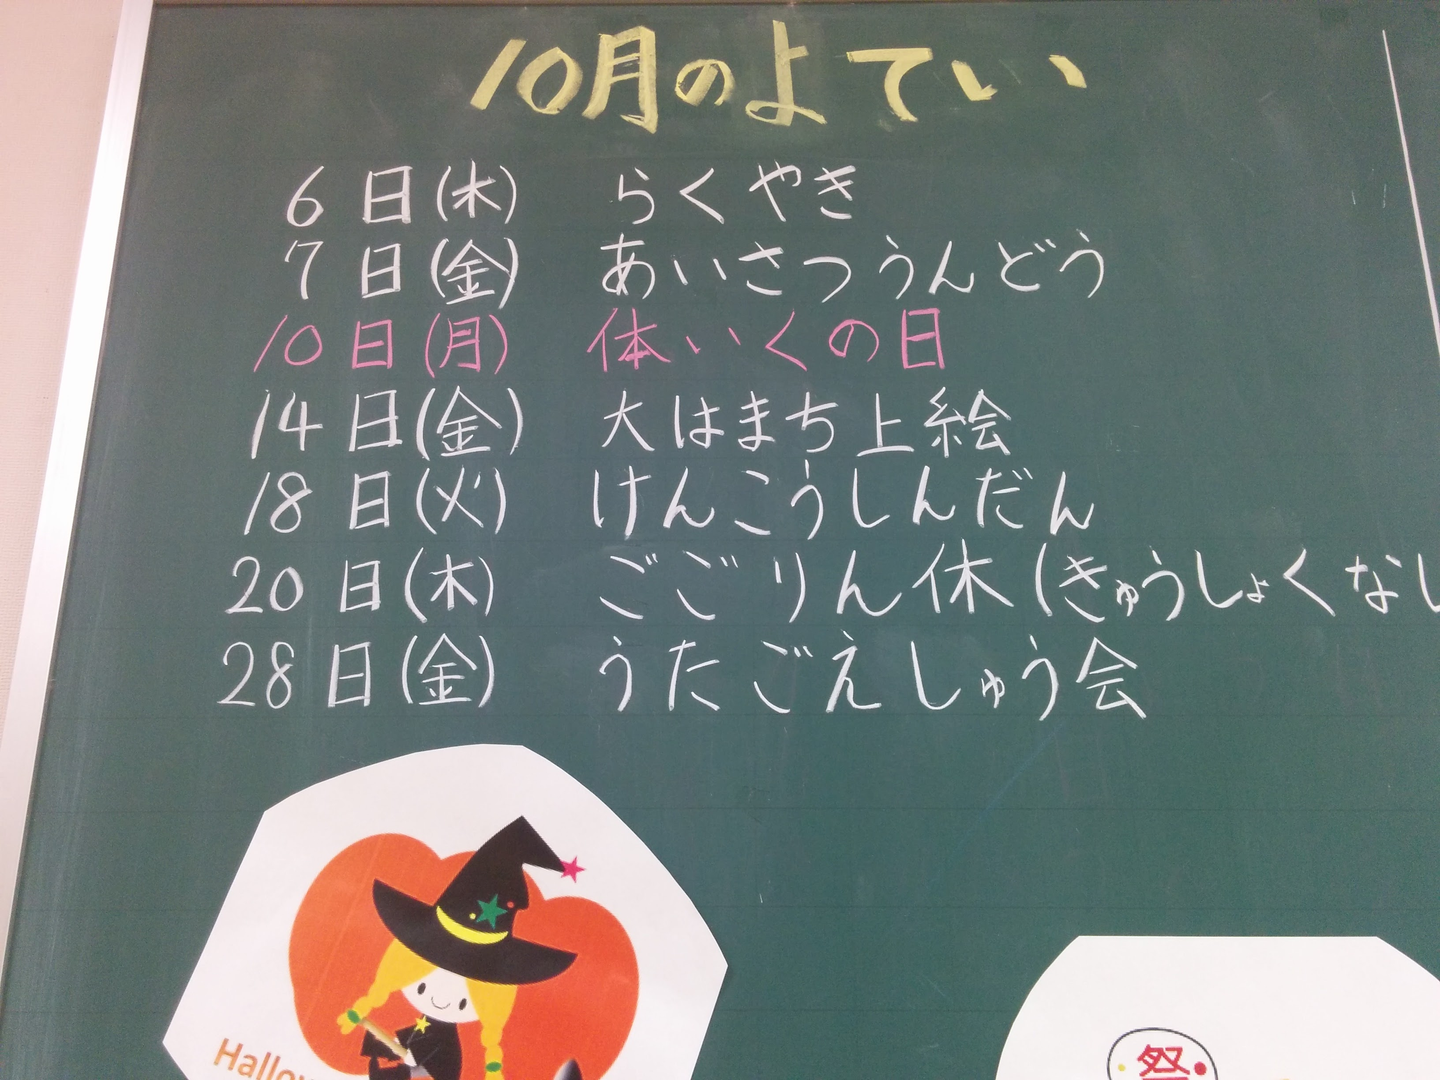 10月のよてい
6日(木) らくやき
7日(金) あいさつうんどう
10日(月) 体いくの日
14日(金) 大はまち上絵
18日(火) けんこうしんだん
20日(木) ごごりん休(きゅうしょくなし
28日(金) うたごえしゅう会
祭